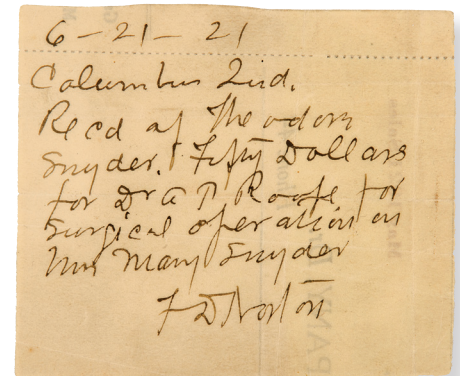 6 - 21 - 21
Columbus Ind.
Recd of Theodore
Snyder. Fifty Dollars
for Dr A P Roope for
Surgical operation on
Mrs Mary Snyder
F D Norton